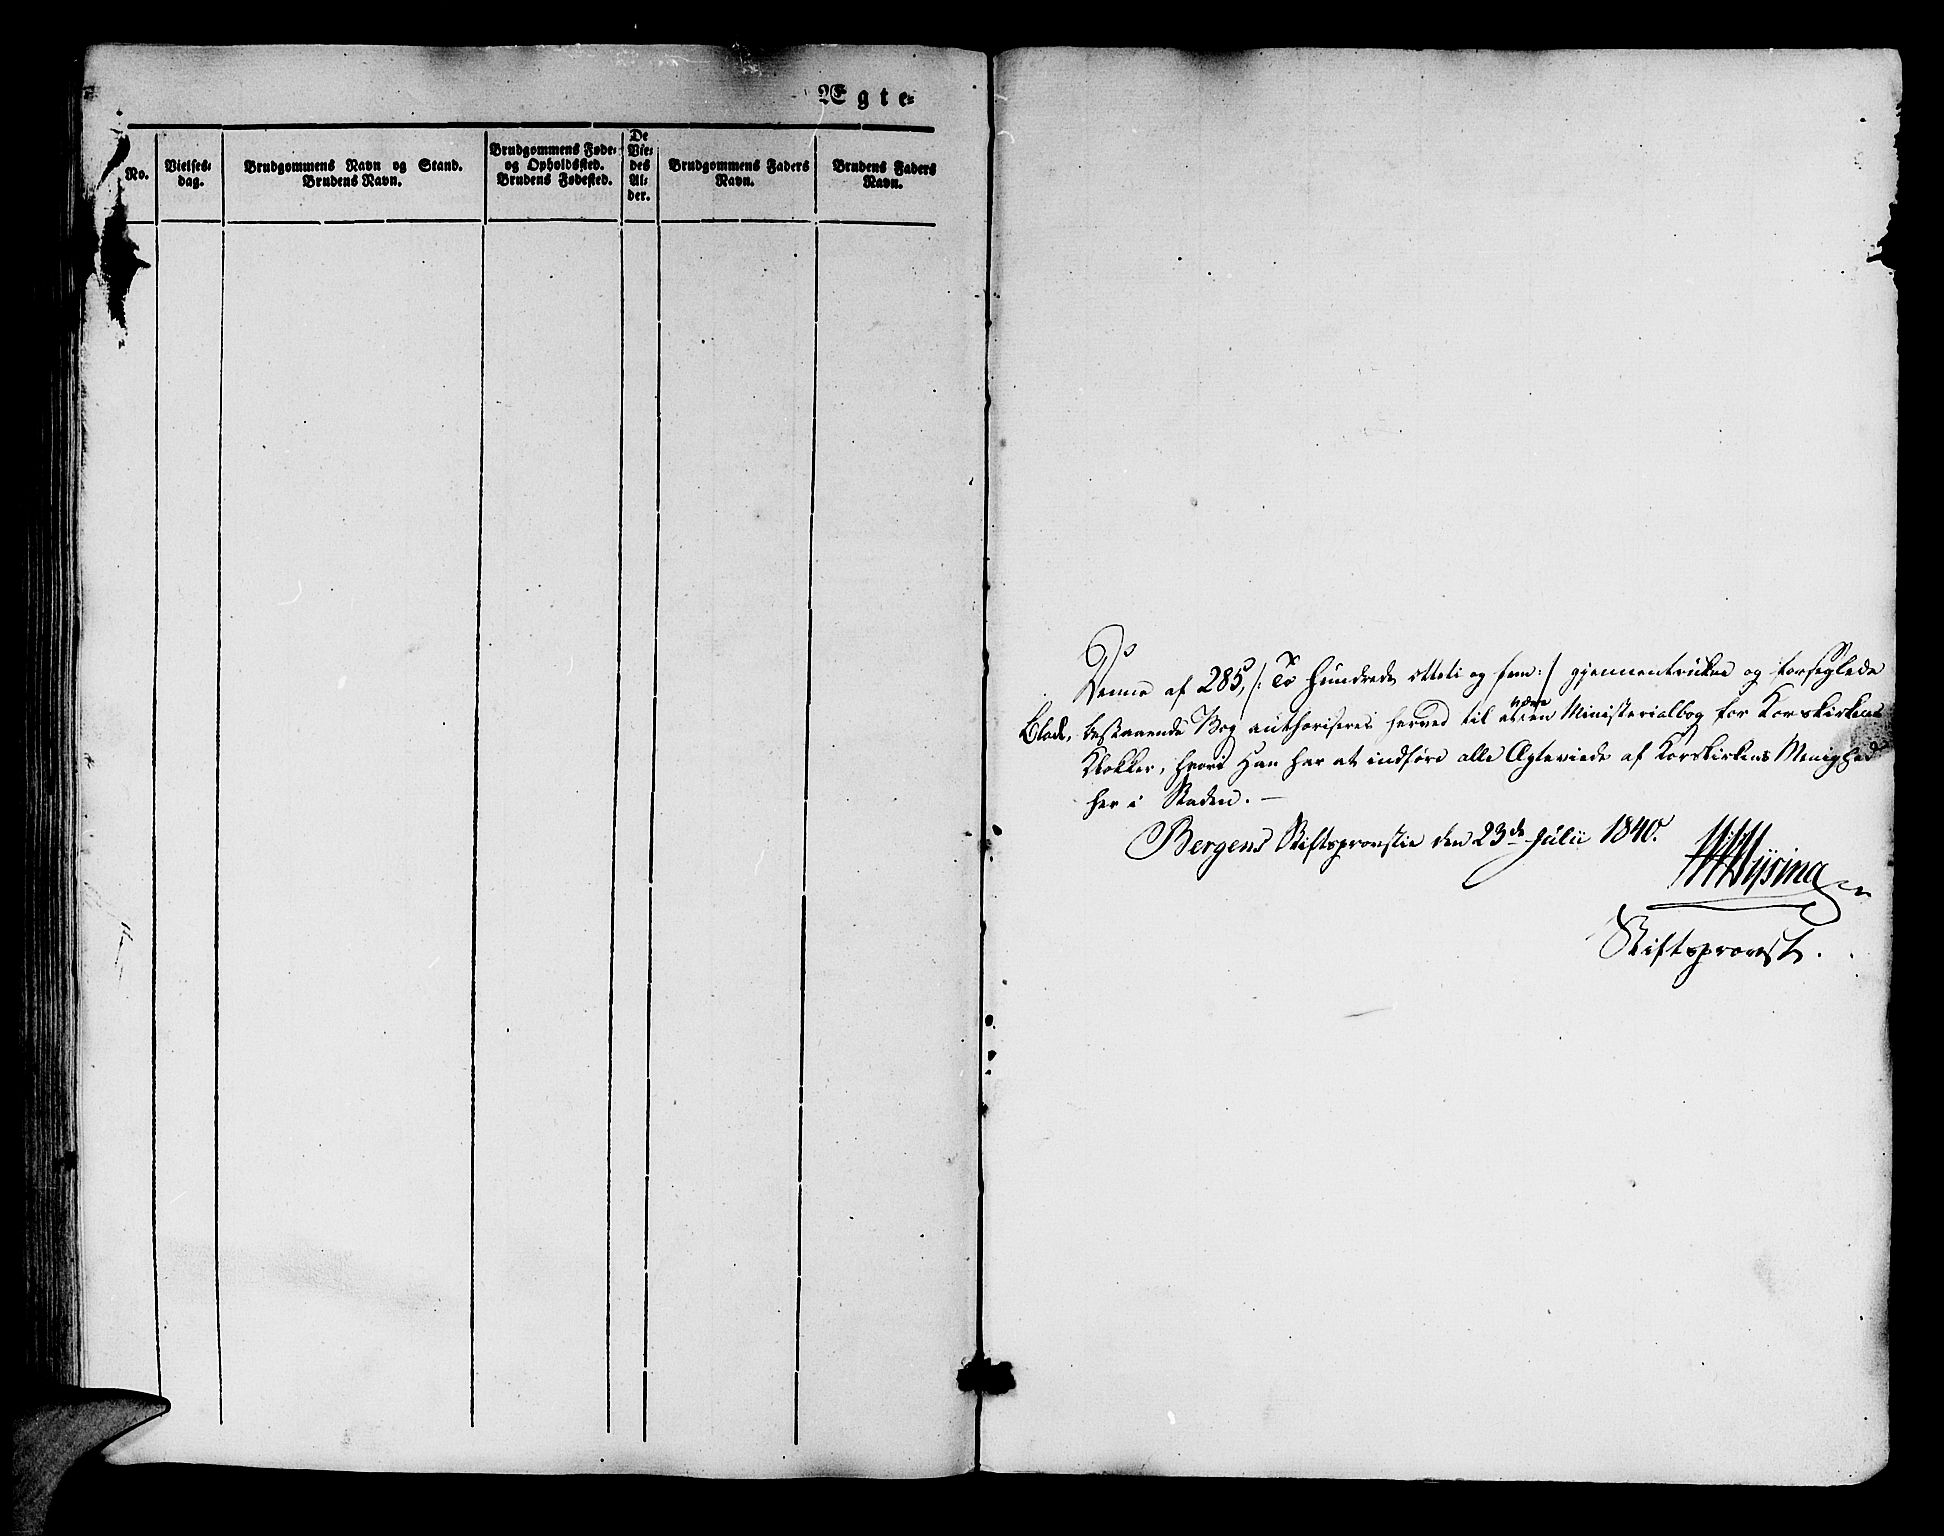 Ægte-
No.
Vielses-
dag.
Brudgommens Navn og Stand.
Brudens Navn.
Brudgommens Føde-
og Opholdssted.
Brudens Fødested.
De
Vie-
des
Al-
der.
Brudgommens Faders
Navn.
Brudens Faders
Navn.
Denne af 285, /: To Hundrede otteti og fem :/ gjennemtrukne og forseglede
Blade, bestaaende Bog authoriseres herved til at være en Ministerialbog for Korskirkens
Klokker, hvori Han har at indføre alle Ægteviede af Korskirkens Menighed
her i Staden. —
Bergens Stiftsprovstie den 23de Julii 1840.
Stiftsprovst.